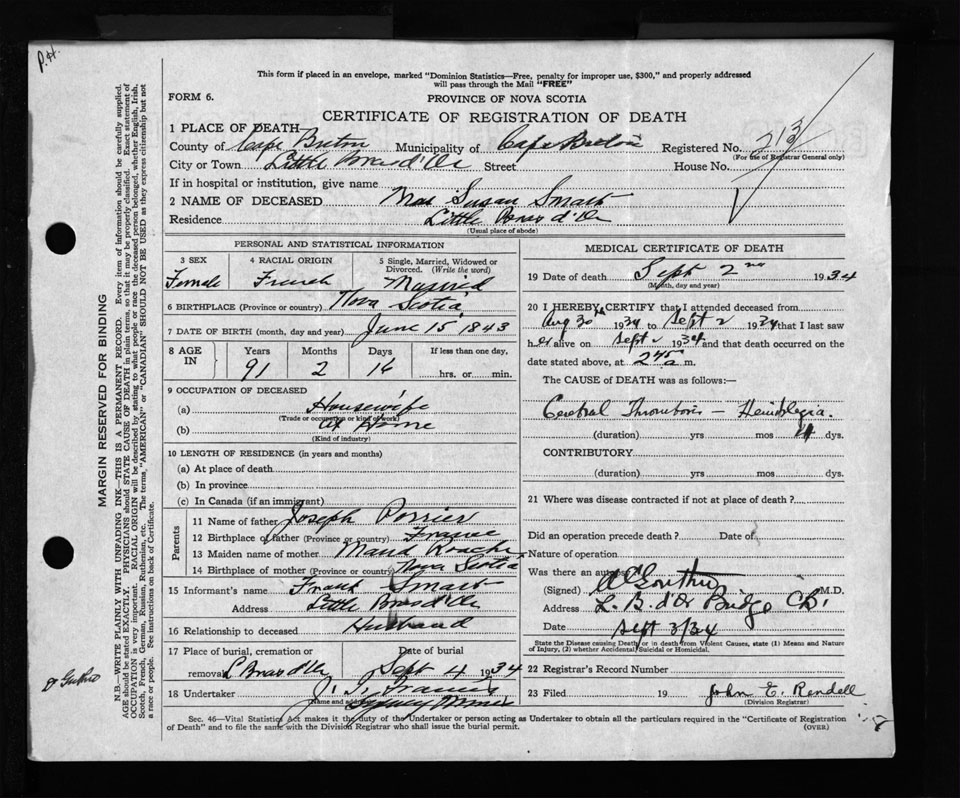 P.H.
This form if placed in an envelope, marked "Dominion Statistics—Free, penalty for improper use, $300," and properly addressed
will pass through the Mail "FREE"
FORM 6.
PROVINCE OF NOVA SCOTIA
CERTIFICATE OF REGISTRATION OF DEATH
1 PLACE OF DEATH
County of Cape Breton Municipality of Cape Breton Registered No. 213
(For use of Registrar General only)
City or Town Little Bras d'Or Street House No.
If in hospital or institution, give name
2 NAME OF DECEASED Mrs Susan Smart
Residence Little Bras d'Or
(Usual place of abode)
PERSONAL AND STATISTICAL INFORMATION
3 SEX 4 RACIAL ORIGIN 5 Single, Married, Widowed or
Divorced. (Write the word)
Female French Married
6 BIRTHPLACE (Province or country) Nova Scotia
7 DATE OF BIRTH (month, day and year) June 15 1843
8 AGE IN Years Months Days If less than one day,
91 2 16 hrs. or min.
9 OCCUPATION OF DECEASED
(a) Housewife
(Trade or occupation or kind of work)
(b) At Home
(Kind of industry)
10 LENGTH OF RESIDENCE (in years and months)
(a) At place of death
(b) In province
(c) In Canada (if an immigrant)
Parents
11 Name of father Joseph Perrier
12 Birthplace of father (Province or country) France
13 Maiden name of mother Maud Roache
14 Birthplace of mother (Province or country) Nova Scotia
15 Informant's name Frank Smart
Address Little Bras d'Or
16 Relationship to deceased Husband
17 Place of burial, cremation or Date of burial
removal L Bras d'Or Sept 4 1934
18 Undertaker J. T. Francis
(Name and address) Sydney Mines
MEDICAL CERTIFICATE OF DEATH
19 Date of death Sept 2nd 1934
(Month, day and year)
20 I HEREBY CERTIFY that I attended deceased from
Aug 30 1934 to Sept 2 1934 that I last saw
her alive on Sept 2 1934 and that death occurred on the
date stated above, at 2 45 a m.
The CAUSE of DEATH was as follows:—
Cerebral Thrombosis — Hemiplegia.
(duration) yrs mos dys.
CONTRIBUTORY
(duration) yrs mos dys.
21 Where was disease contracted if not at place of death?
Did an operation precede death? Date of
Nature of operation
Was there an autopsy
(Signed) M.D.
Address L. B. d'Or Bridge C.B.
Date Sept 3/34
State the Disease causing Death, or in death from Violent Causes, state (1) Means and Nature
of Injury, (2) whether Accidental, Suicidal or Homicidal.
22 Registrar's Record Number
23 Filed 19 John E. Rendell
(Division Registrar)
Sec. 46—Vital Statistics Act makes it the duty of the Undertaker or person acting as Undertaker to obtain all the particulars required in the "Certificate of Registration
of Death" and to file the same with the Division Registrar who shall issue the burial permit. (OVER)
MARGIN RESERVED FOR BINDING
N.B.—WRITE PLAINLY WITH UNFADING INK—THIS IS A PERMANENT RECORD. Every item of information should be carefully supplied.
AGE should be stated EXACTLY. PHYSICIANS should STATE CAUSE OF DEATH in plain terms, so that it may be properly classified. Exact statement of
OCCUPATION is very important. RACIAL ORIGIN will be described by stating to what people or race the deceased person belonged, whether English, Irish,
Scotch, French, German, Russian, Ruthenian, etc. The terms, "AMERICAN" or "CANADIAN" SHOULD NOT BE USED as they express citizenship but not
a race or people. See instructions on back of Certificate.